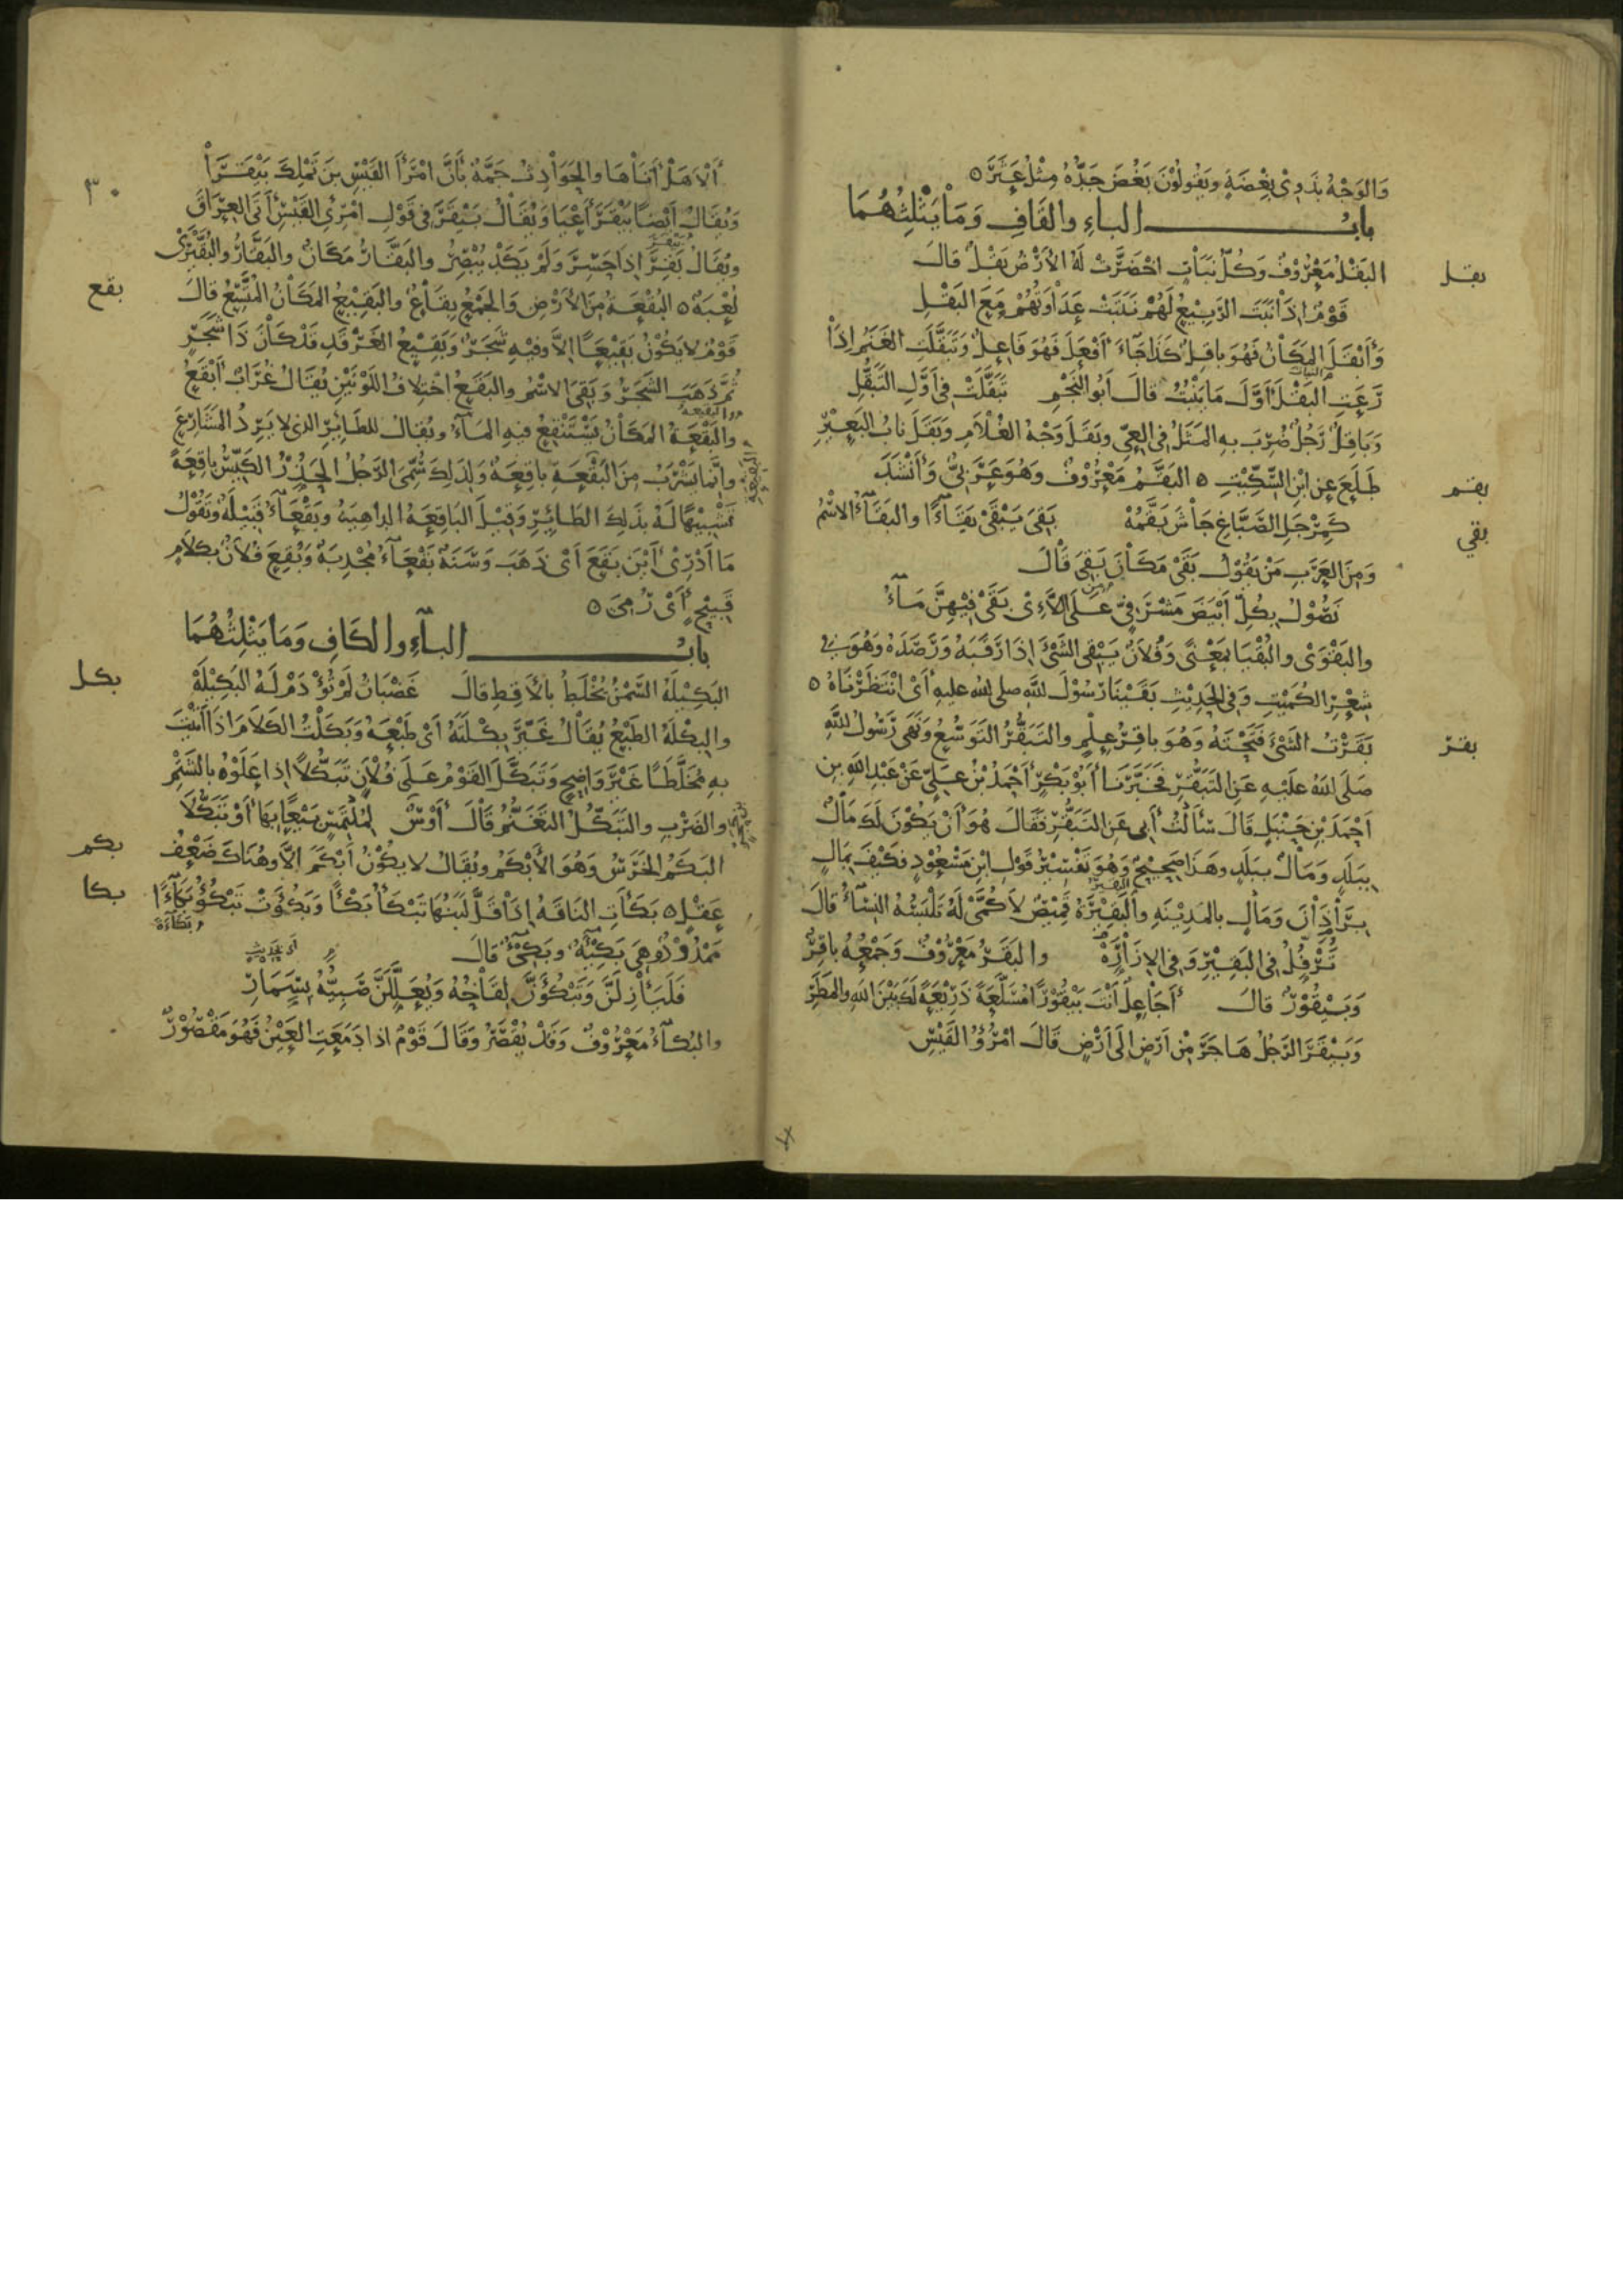 وَالوَجْهُ بَدَوِيّ بِغِضَةٍ وَيَقُولُوْنَ بَغُضَ جَدُّهُ مِثْلُ عَثَرَ ٥
بابُ الباءِ والقَافِ وَمَا يَثْلِثُهُمَا
بقل
البَقْلُ مَعْرُوْفٌ وَكُلُّ نَبَاتٍ اخْضَرَّتْ لَهُ الأَرْضُ بَقْلٌ قالَ
قَوْمٌ اذَا نَبَتَ الرَّبِيْعُ لَهُمْ نَبَتَتْ عَدَاوَتُهُمْ مَعَ البَقْلِ
وَأَبْقَلَ المَكَانُ فَهُوَ باقِلٌ كَذَا جَاءَ أَفْعَلَ فَهُوَ فَاعِلٌ وَتَبَقَّلَتِ الغَنَمُ اِذَا
رَعَتِ البَقْلَ أَوَّلَ مَا يَنْبُتُ قالَ أَبُو النَّجْمِ تَبَقَّلَتْ فِي أَوَّلِ التَّبَقُّلِ
وَبَاقِلٌ رَجُلٌ ضُرِبَ بِهِ المَثَلُ فِي العِيِّ وبَقَلَ وَجْهُ الغُلَامِ وبَقَلَ نابُ البَعِيْرِ
بقم
طَلَعَ عنِ ابْنِ السِّكِّيْتِ ٥ البَقَّمُ مَعْرُوْفٌ وَهُوَ عَرَبِيٌّ وَأَنْشَدَ
بقي
كَمِرْجَلِ الصَّبَّاغِ جَاشَ بَقَّمُهْ بَقِيَ يَبْقَى بَقَاءً والبَقَاءُ الاسْمُ
وَمِنَ العَرَبِ مَنْ يَقُوْلُ بَقَى مَكَانَ بَقِيَ قَالَ
نَصُوْلُ بِكُلِّ أَبْيَضَ مَشْرَفِيٍّ عَلَى اللَّاءِيْ بَقَى فِيْهِنَّ مَاءُ
والبَقْوَى والبُقْيَا بِمَعْنًى وَفُلَانٌ يَبْقِي الشَّيْءَ إِذَا رَقَبَهُ وَرَصَدَهُ وَهُوَ في
شِعْرِ الكُمَيْتِ وَفِي الحَدِيْثِ بَقَيْنَا رَسُوْلَ اللّٰهِ صلى الله عليه أَيْ انْتَظَرْنَاهُ ٥
بقر
بَقَرْتُ الشَّيْءَ فَتَحْتَهُ وَهُوَ باقِرُ عِلْمٍ والتَّبَقُّرُ التَّوَسُّعُ وَنَهَى رَسُولُ اللّٰهِ
صَلَى اللهُ عَلَيْهِ عَنِ التَّبَقُّرِ فَخَبَّرَنَا أَبُوْ بَكْرٍ أَحْمَدُ بْنُ عَلِيٍّ عَنْ عَبْدِ اللهِ بن
أَحْمَدَ بْنِ حَنْبَلٍ قَالَ سَأَلْتُ أَبِي عَنِ التَّبَقُّرِ فَقَالَ هُوَ أَنْ يَكُوْنَ لَكَ مَالٌ
بِبَلَدٍ وَمَالٌ بِبَلَدٍ وهَذَا صَحِيْحٌ وَهُوَ تَفْسِيْرُ قَوْلِ ابْنِ مَسْعُوْدٍ فكَيْفَ بِمَالٍ
بِرَاذَانَ وَمَالٍ بالمَدِيْنَةِ والبَقِيْرَةُ قَمِيْصٌ لَا كُمَّيْ لَهُ تَلْبَسُهُ النِّسَاءُ قالَ
تَرْفُلُ فِي البَقِيْرِ وَفِي الاِزَارَةْ والبَقَرُ مَعْرُوْفٌ وَجَمْعُهُ باقِرٌ
وَبَيْقُوْرٌ قالَ أَجَاعِلٌ أَنْتَ بَيْقُوْرًا مُسَلَّعَةً ذَرِيْعَةً لَكَ بَيْنَ اللهِ والمَطَرِ
وَبَيْقَرَ الرَّجُلُ هَاجَرَ مِنْ أَرْضٍ إِلَى أَرْضٍ قَالَ امْرُؤُ القَيْسِ
٣٠
أَلَا هَلْ أَتَاهَا والحَوَادِثُ جَمَّةٌ بِأَنَّ امْرَأَ القَيْسِ بنَ تَمْلِكَ بَيْقَرَا
وَيُقَالُ أَيْضًا بَيْقَرَ أَعْيَا وَيُقَالُ بَيْقَرَ فِي قَوْلِ امْرِئِ القَيْسِ أَتَى العِرَاقَ
وَيُقَالُ بَقِرَ إذا حَسِرَ وَلَمْ يَكَدْ يُبْصِرُ والبَقَّارُ مَكَانٌ والبَقَّارُ والبُقَّيْرَى
بقع
لُعْبَةٌ ٥ البُقْعَةُ مِنَ الأَرْضِ وَالجَمْعُ بِقَاعٌ والبَقِيْعُ المَكَانُ المُتَّسِعُ قالَ
قَوْمٌ لا يَكُوْنُ بَقِيْعًا إلاَّ وفِيْهِ شَجَرٌ وَبَقِيْعُ الغَرْقَدِ قَدْ كَانَ ذَا شَجَرٍ
ثُمَّ ذَهَبَ الشَّجَرُ وَبَقِيَ الاسْمُ والبَقَعُ اخْتِلَافُ اللَّوْنَيْنِ يُقَالُ غُرَابٌ أَبْقَعُ
والبَقْعَةُ المَكَانُ يَسْتَنْقِعُ فِيهِ المَاءُ ويُقَالُ للطَّائِرِ الذي لا يَرِدُ المَشَارِعَ
وإنَّما يَشْرَبُ مِنَ البَقْعَةِ باقِعَةٌ وَلِذَلِكَ سُمِّيَ الرَّجُلُ الحَذِرُ الكَيِّسُ باقِعَةً
تَشْبِيْهًا لَهُ بذَلِكَ الطَّائِرِ وَقِيْلَ البَاقِعَةُ الداهِيَةُ وبَقْعَاءُ قَبِيْلَةٌ وَيَقُوْلُ
مَا أَدْرِيْ أَيْنَ بَقَعَ أَيْ ذَهَبَ وَسَنَةٌ بَقْعَاءُ مُجْدِبَةٌ وَبُقِعَ فُلَانٌ بكلَامٍ
قَبِيْحٍ أَيْ رُمِيَ ٥
بابُ البَاءِ والكَافِ وَمَا يَثْلِثُهُمَا
بكل
البَكِيْلَةُ السَّمْنُ يُخْلَطُ بالأَقِطِ قالَ غَضْبَانُ لَمْ تُؤْدَمْ لَهُ البَكِيْلَهْ
والبِكْلَةُ الطَّبْعُ يُقَالُ غَيَّرَ بِكْلَتَهُ أَيْ طَبْعَهُ وَبَكَلْتُ الكَلاَمَ اذَا أَتَيْتَ
بِهِ مُخَلَّطًا غَيْرَ وَاضِحٍ وَتَبَكَّلَ القَوْمُ عَلَى فُلَانٍ تَبَكُّلاً إذا عَلَوْهُ بالشَّتْمِ
والضَرْبِ والتَّبَكُّلُ التَّغَنُّمُ قَالَ أَوْسٌ لِمُلْتَمِسٍ بَيْعًا بِهَا أَوْ تَبَكُّلَا
بكم
البَكَمُ الخَرَسُ وَهُوَ الأَبْكَمُ ويُقَالُ لا يَكُوْنُ أَبْكَمَ الاَّ وَهُنَاكَ ضَعْفُ
بكا
عَقْلٍ ٥ بَكَأَتِ النَاقَةُ إِذَا قَلَّ لَبَنُهَا تَبْكَأُ بَكْأً وَبَكُؤَتْ تَبْكُؤُ بَكَاءً
وبَكَاءَةً
مَمْدُوْدٌ وهِيَ بَكِيْئَةٌ وَبَكِيْءٌ قَالَ
فَلَيَأْزِلَنَّ وَتَبْكُؤَنَّ لِقَاحُهُ وَيُعَلِّلَنَّ صَبِيَّهُ بِسَمَارِ
والبُكَاءُ مَعْرُوْفٌ وَقَدْ يُقْصَرُ وَقَالَ قَوْمٌ اذا دَمَعَتِ العَيْنُ فَهُوَ مَقْصُوْرٌ